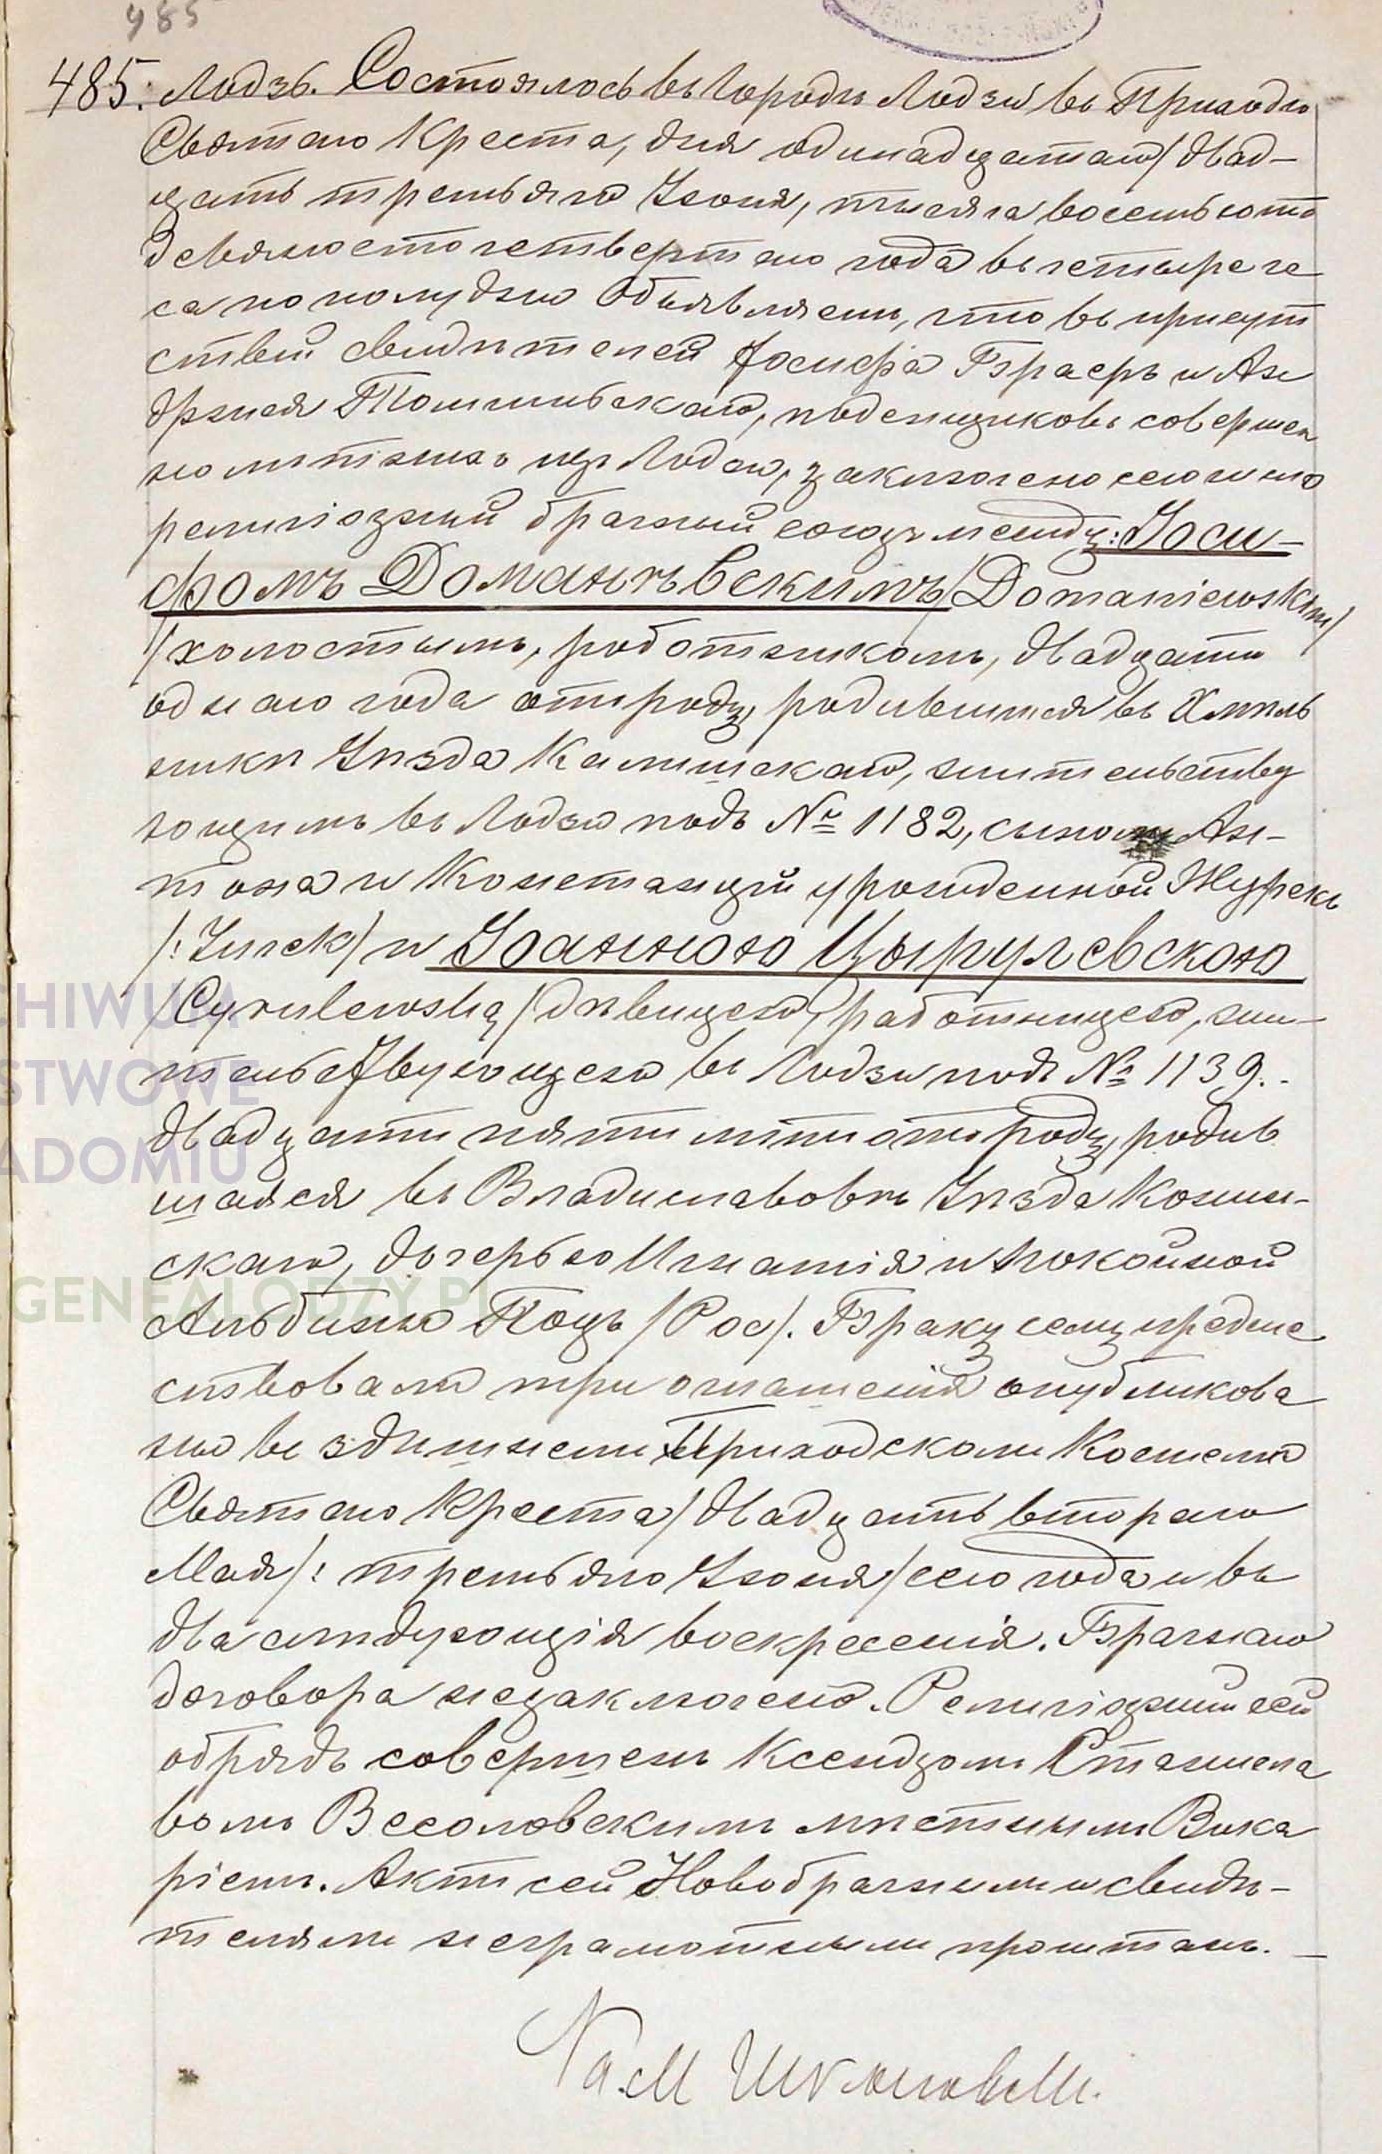 485
485. Лодзь. Состоялось въ Городѣ Лодзи въ Приходѣ
Святаго Креста, дня одинадцатаго / двад-
цать третьяго Іюня, тысяча восемьсотъ
девяносто четвертаго года въ четыре ча
са по полудни. Объявляемъ, что въ присут
ствіи свидѣтелей Іосифа и Ан
држея поденщиковъ совершен
нолѣтнихъ изъ Лодзи, заключено сего числа
религіозный брачный союзъ между: Іоси-
фомъ Доманѣвскимъ / Domaniewskim /
/ холостымъ, роботникомъ, двадцати
одного года отъ роду, родившимся въ Хмѣль
никѣ Уѣзда Калишскаго, жительству
ющимъ въ Лодзи подъ № 1182, сыномъ Ан-
тона и Констанціи урожденной Журекъ
/: Żurek / и Іоанною Цырулевскою
/ Cyrulewską / дѣвицею, работницею, жи-
тельствующею въ Лодзи подъ № 1139.-
двадцати пяти лѣтъ отъ роду, родив
шаяся въ Владиславовѣ Уѣзда Конин-
скаго, дочерью Игнатія и покойной
Альбины Поцъ / Poc /. Браку сему предше
ствовали три оглашенія опубликова
ны въ здѣшнемъ Приходскомъ Костелѣ
Святаго Креста / двадцать втораго
Мая /: третьяго Іюня / сего года и въ
два слѣдующія воскресенія. Брачнаго
договора незаключено. Религіозный сей
обрядъ совершенъ Ксендзомъ Станисла
вомъ Весоловскимъ мѣстнымъ Вика
ріемъ. Актъ сей Новобрачнымъ и свидѣ-
телямъ неграмотнымъ прочитанъ. —